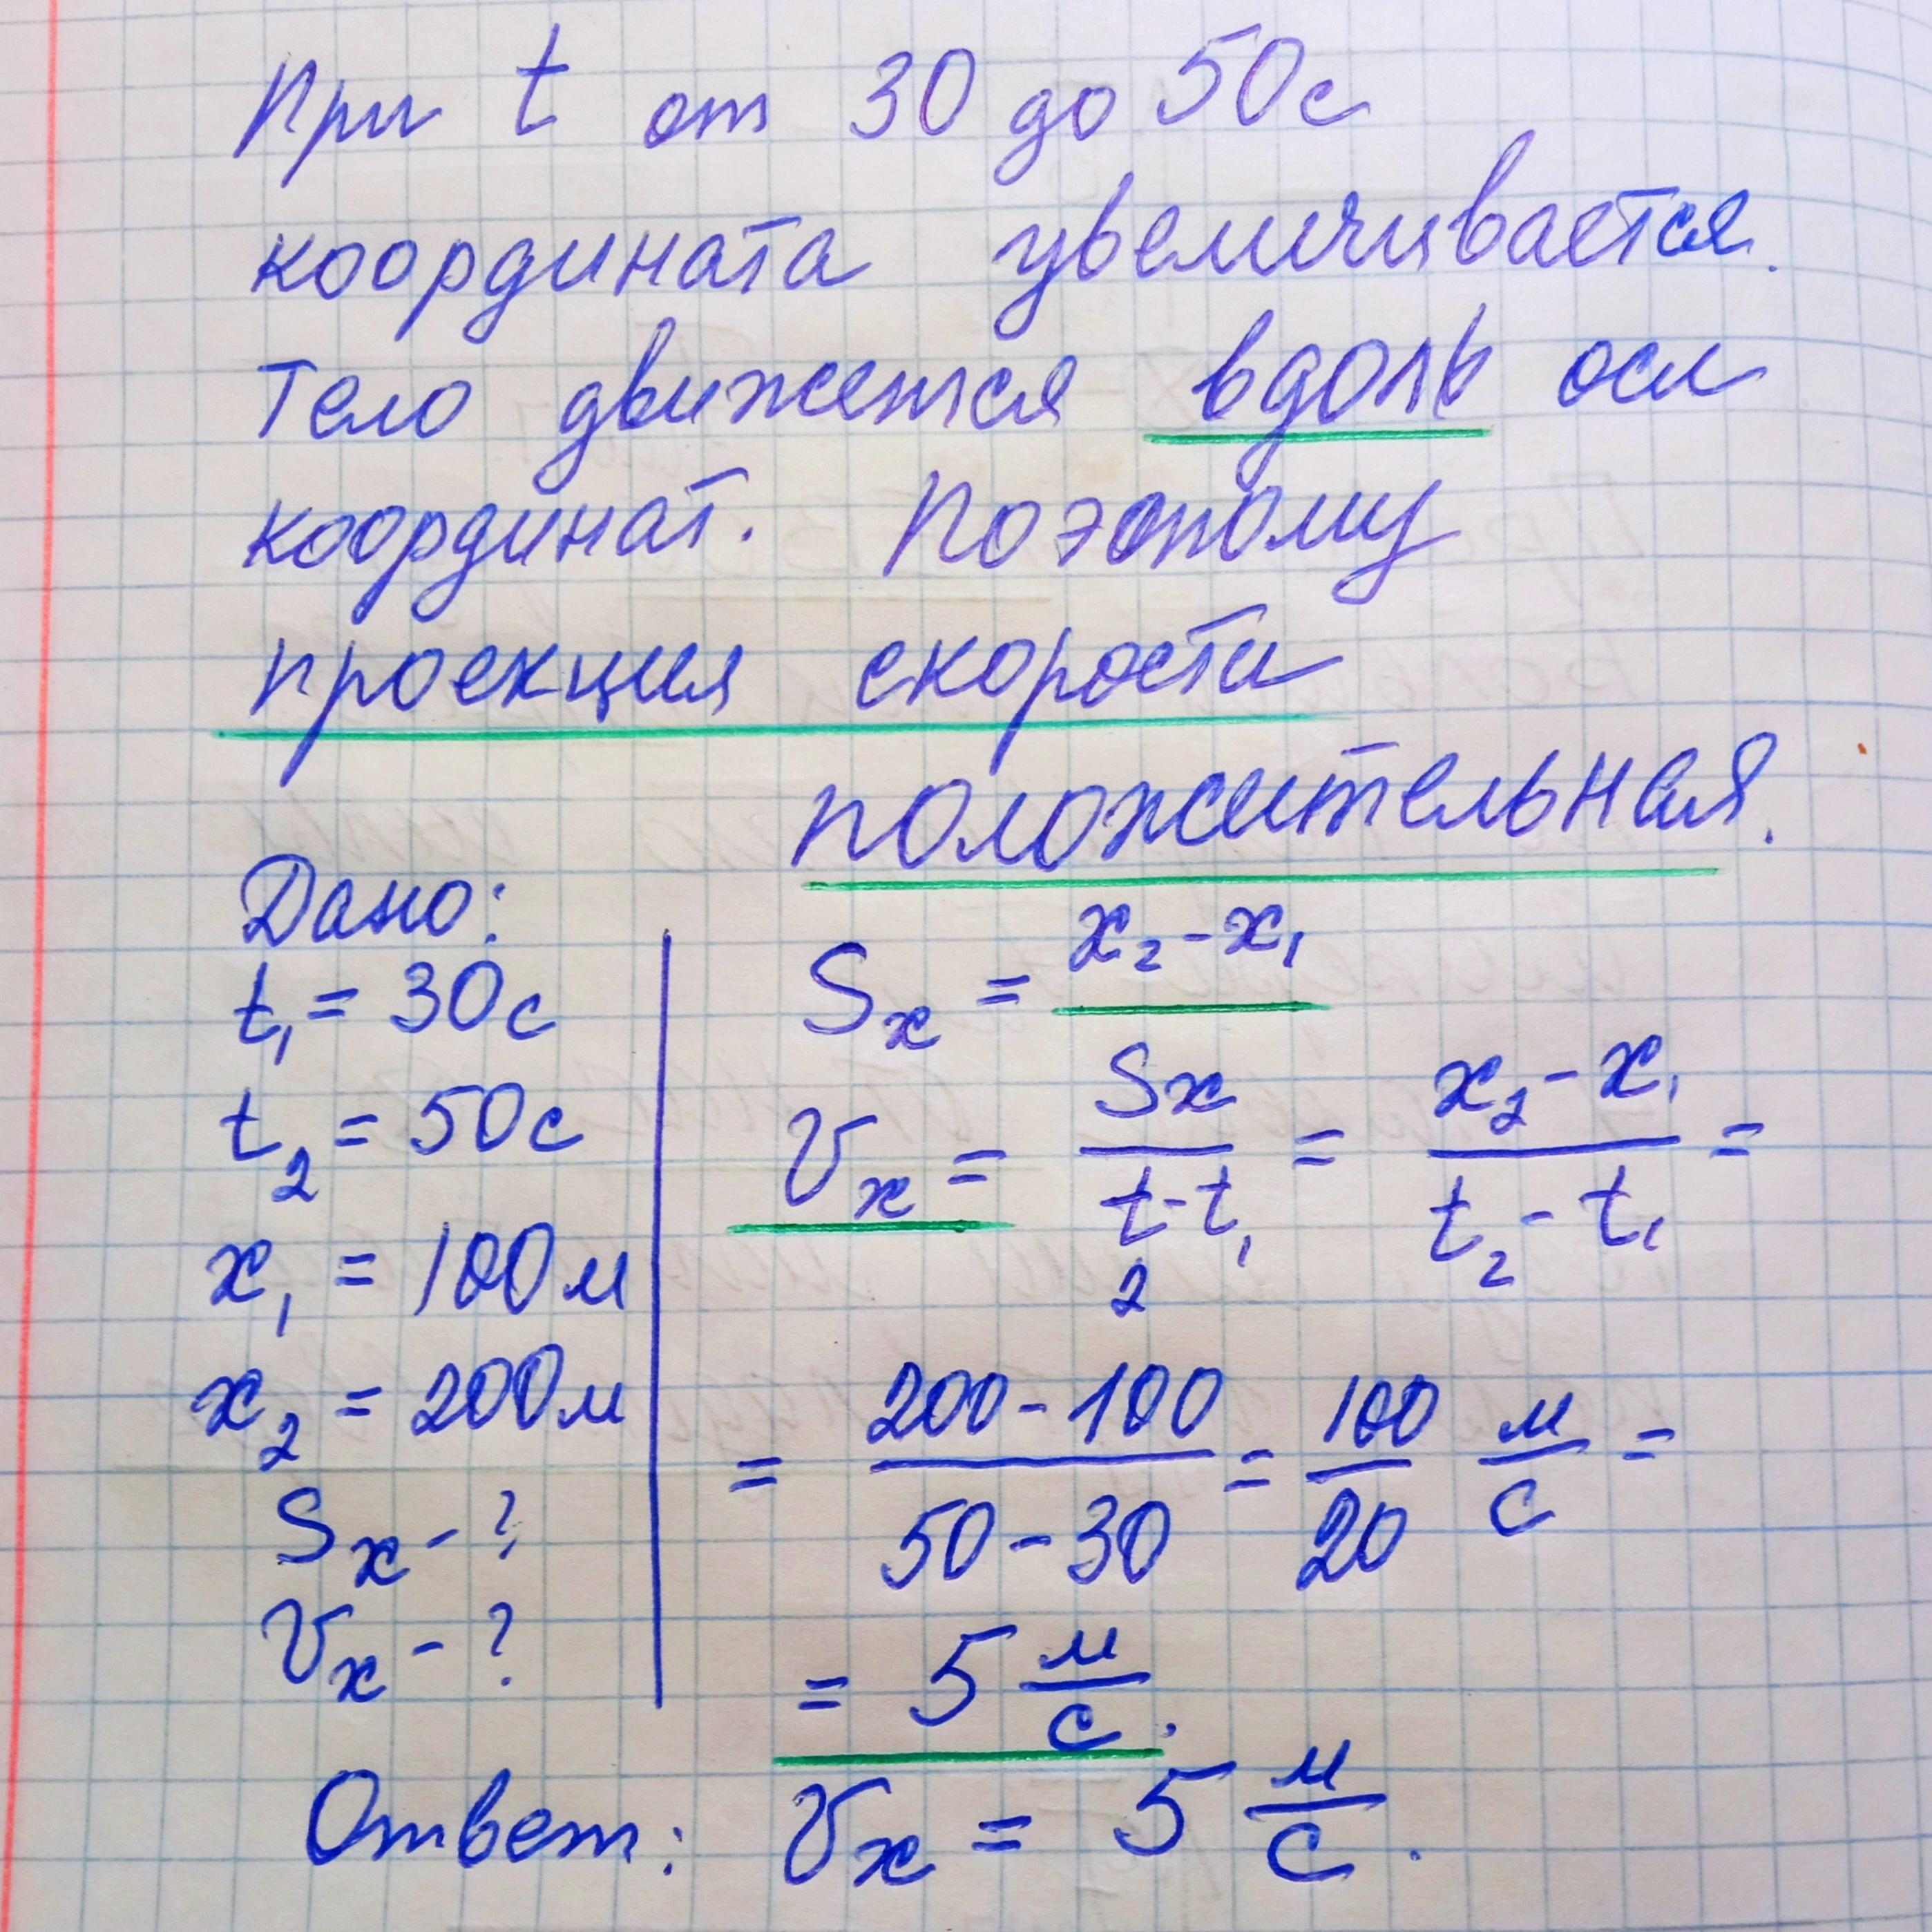 При t от 30 до 50с
координата увеличивается.
Тело движется вдоль оси
координат. Поэтому
проекция скорости
положительная.
Дано:
t₁ = 30с
t₂ = 50с
x₁ = 100м
x₂ = 200м
Sx - ?
Vx - ?
Sx = x₂ - x₁
Vx = Sx / (t₂ - t₁) = (x₂ - x₁) / (t₂ - t₁) =
= (200 - 100) / (50 - 30) = 100/20 м/с =
= 5 м/с.
Ответ: Vx = 5 м/с.